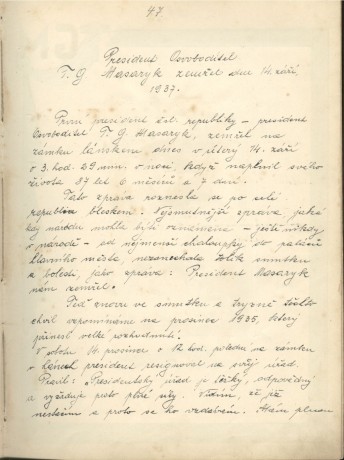 47
President Osvoboditel
T. G. Masaryk zemřel dne 14. září
1937.
První president čsl. republiky - president
Osvoboditel T. G. Masaryk, zemřel na
zámku lánském, dnes v úterý 14. září
o 3. hod. 29 min. v noci, když naplnil svého
života 87 let 6 měsíců a 7 dní.
Tato zpráva roznesla se po celé
republice bleskem. Nejsmutnější zpráva, jaká
kdy národu mohla býti oznámena - ještě nikdy
v národě - od nejmenší chaloupky do paláců
hlavního města, nezanechala tolik smutku
a bolesti, jako zpráva: President Masaryk
nám zemřel.
Teď znovu ve smutku a tryzně těchto
chvil vzpomínáme na prosinec 1935, který
přinesl velké rozhodnutí.
V sobotu 14. prosince o 12 hod. polední, ve zámku
v Lánech president resignoval na svůj úřad.
Pravil: "Presidentský úřad je těžký, odpovědný
a vyžaduje proto plné síly. Vidím, že již
nestačím a proto se ho vzdávám.